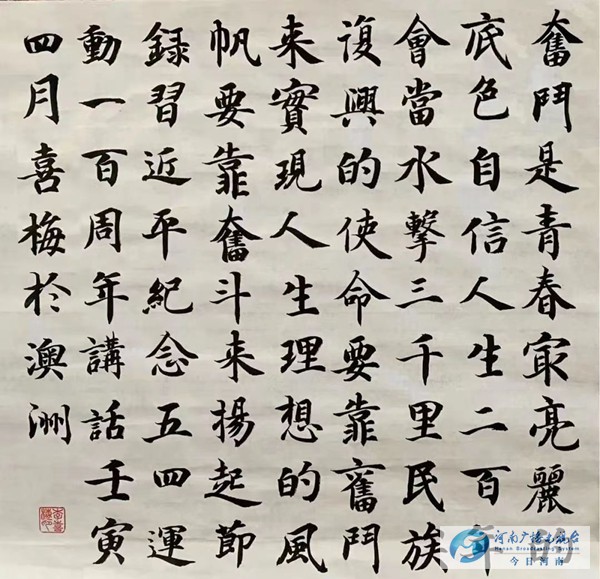 奮鬥是青春冣亮麗
底色自信人生二百年
會當水擊三千里民族
復興的使命要靠奮鬥
来實現人生理想的風
帆要靠奮斗来揚起節
録習近平紀念五四運
動一百周年講話壬寅
四月喜梅於澳洲
河南广播电视台
Henan Broadcasting System
今日河南